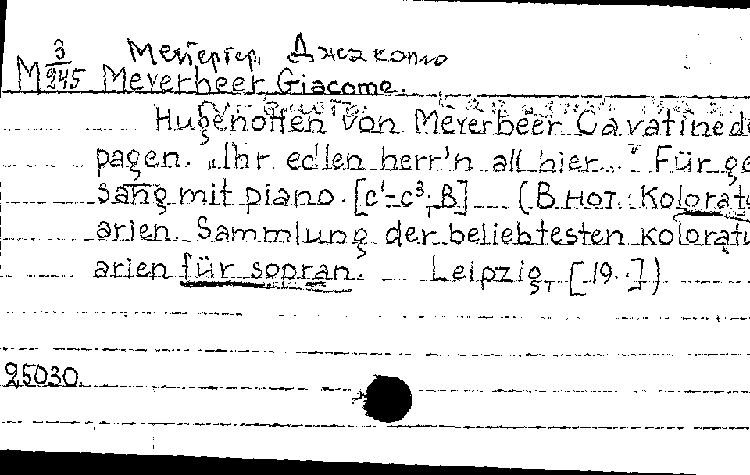 Мейербер, Джакомо
M 3/245 Meyerbeer Giacomo.
Hugenotten von Meyerbeer Cavatine de
pagen. „Ihr edlen herr'n all hier..." Für ge
sang mit piano. [c¹-c³; B] (В нот.: Kolorat
arien. Sammlung der beliebtesten koloratu
arien für sopran. Leipzig, [19..])
25030.